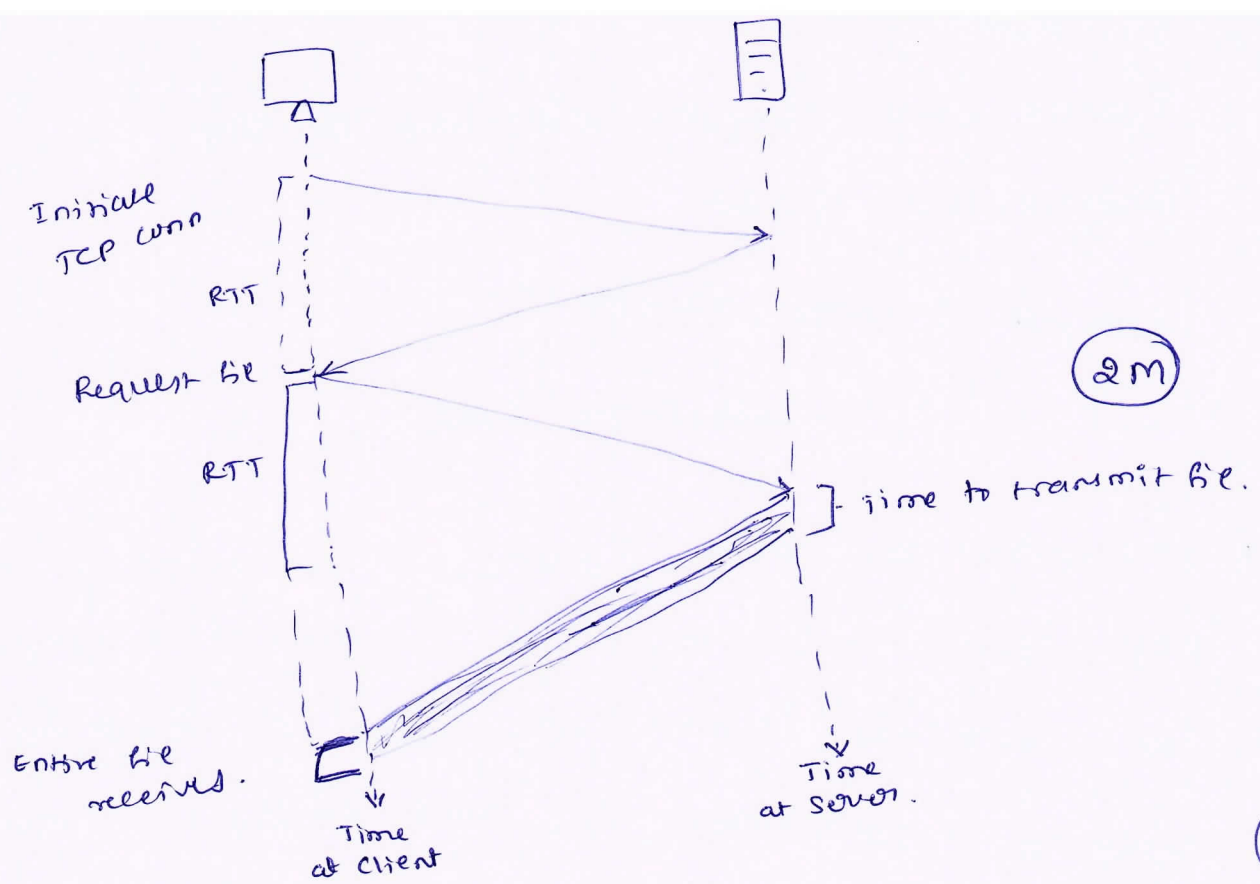 Initiate
TCP conn
RTT
Request file
RTT
2M
Time to transmit file.
Entire file
received.
Time
at Client
Time
at Server.